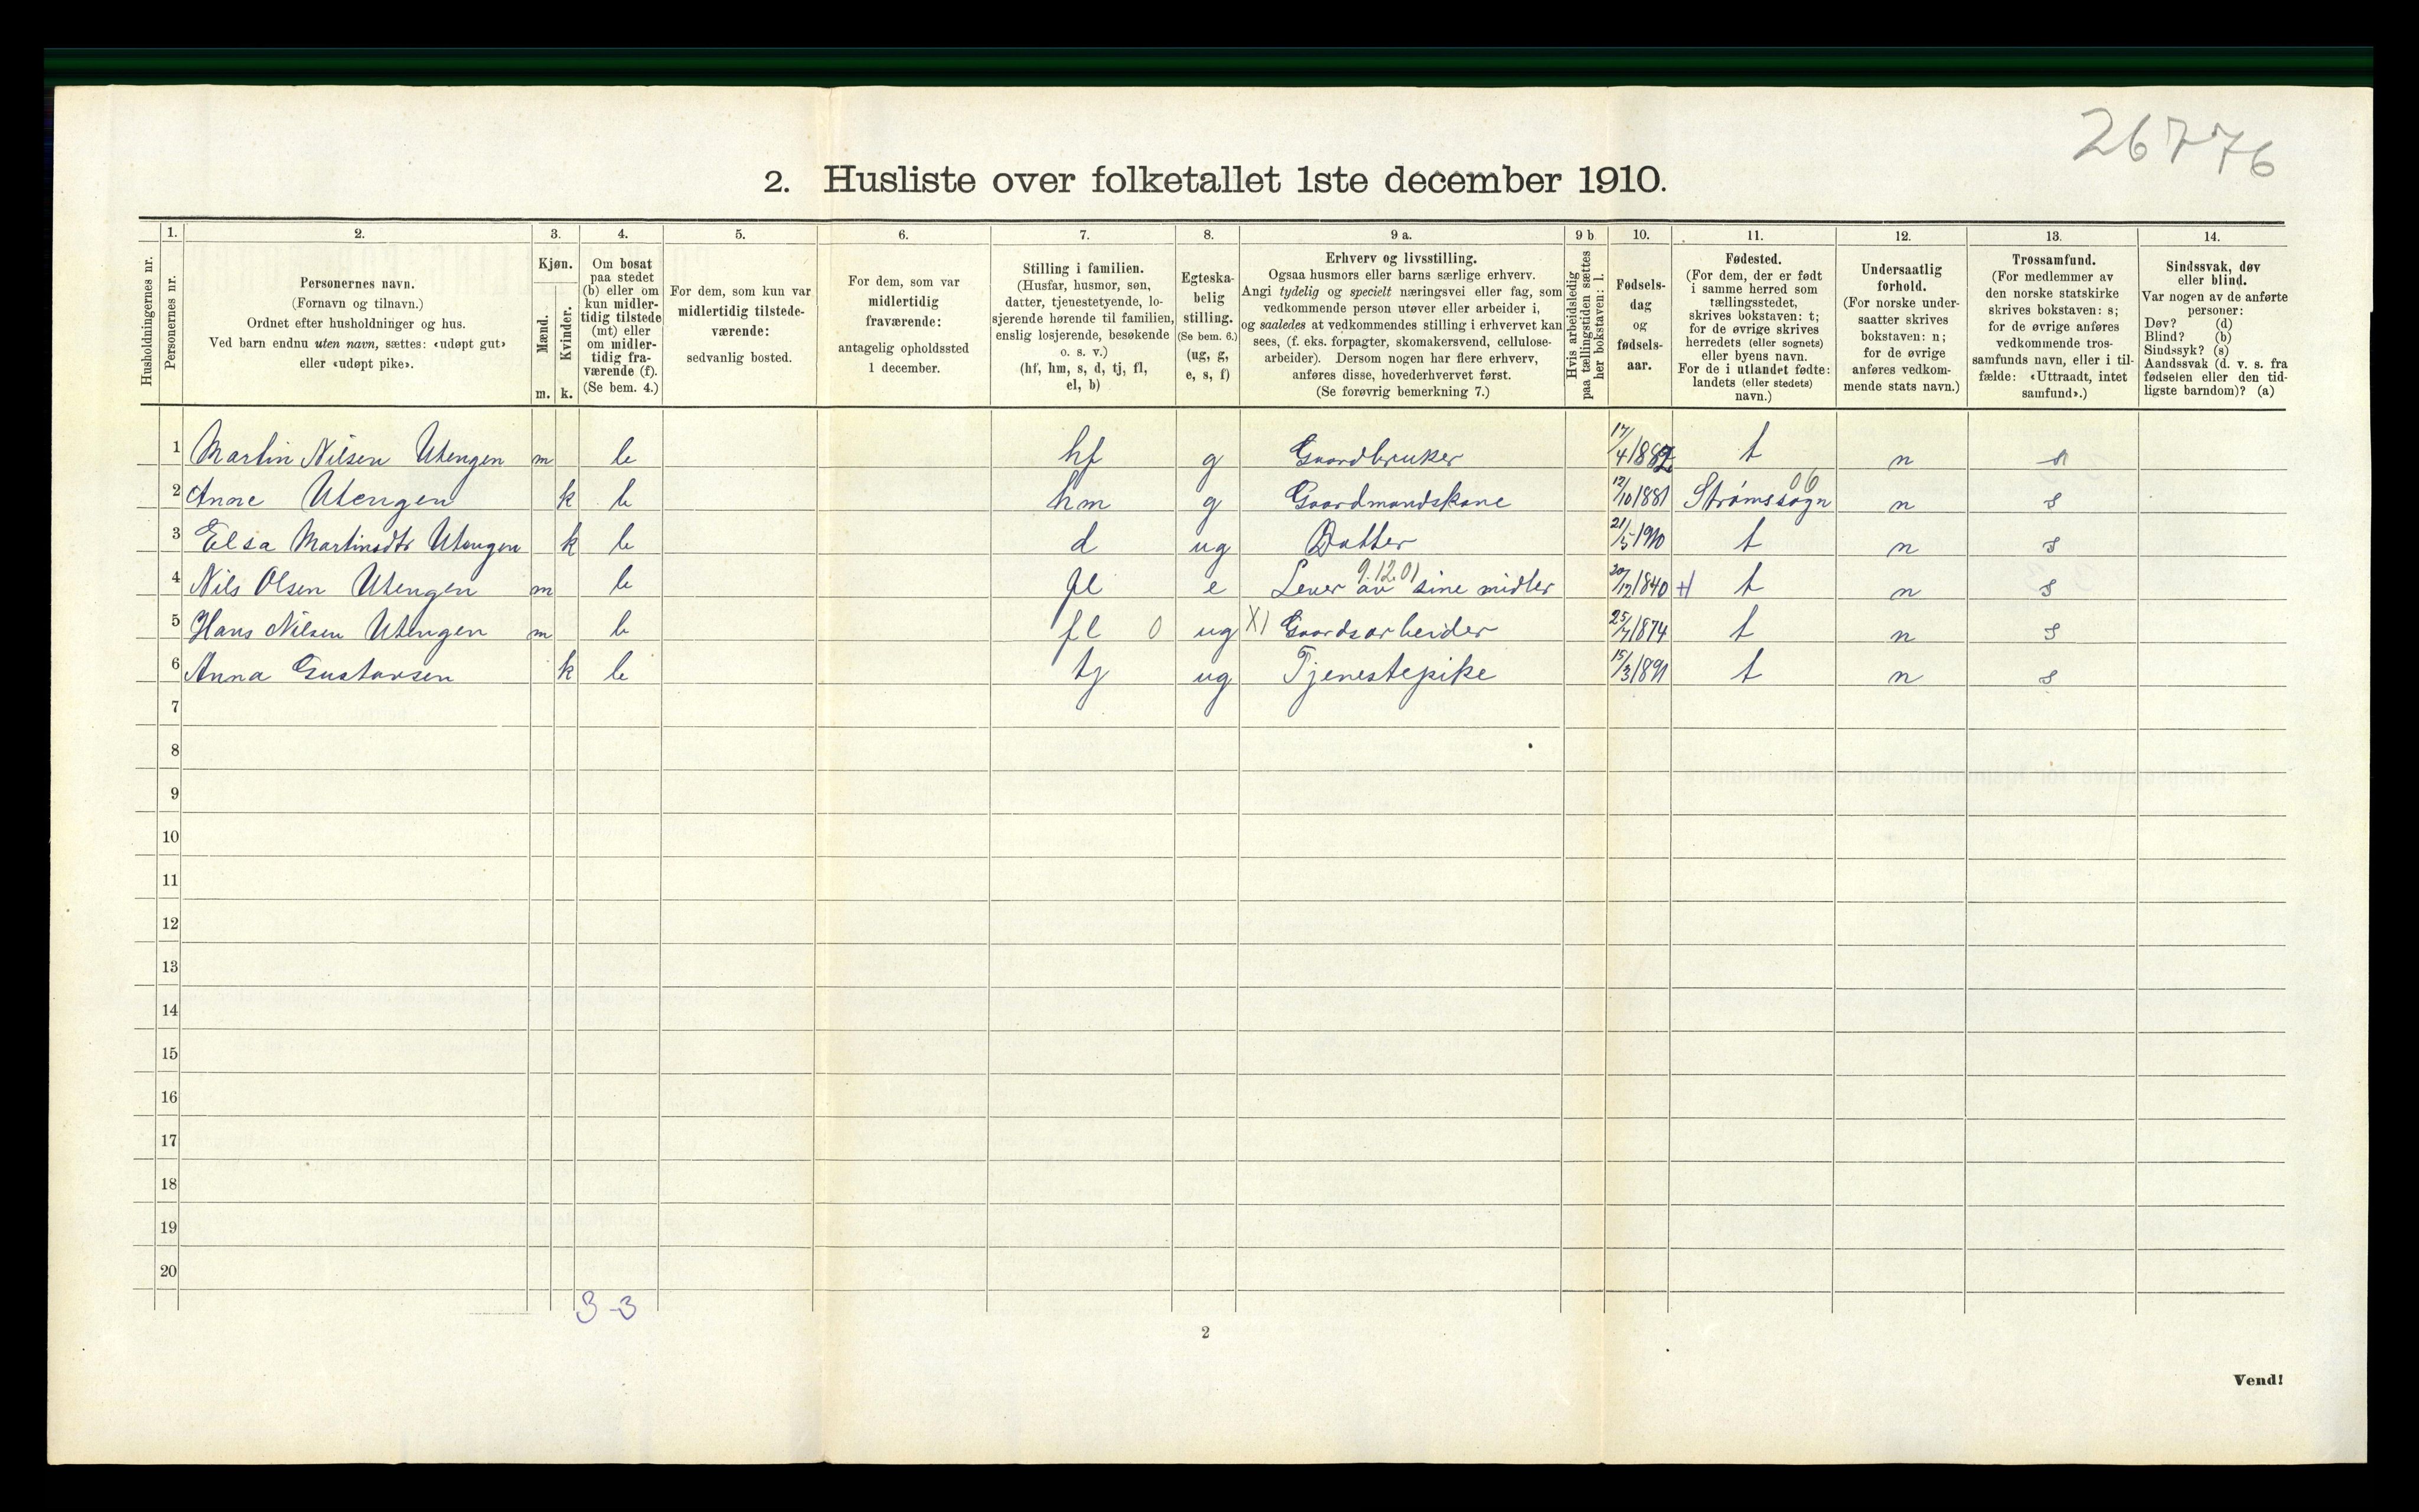 26776
2. Husliste over folketallet 1ste december 1910.
Husholdningernes nr.
1.
Personernes nr.
2.
Personernes navn.
(Fornavn og tilnavn.)
Ordnet efter husholdninger og hus.
Ved barn endnu uten navn, sættes: «udøpt gut»
eller «udøpt pike».
3.
Kjøn.
Mænd.
Kvinder.
m. k.
4.
Om bosat
paa stedet
(b) eller om
kun midler-
tidig tilstede
(mt) eller
om midler-
tidig fra-
værende (f).
(Se bem. 4.)
5.
For dem, som kun var
midlertidig tilstede-
værende:
sedvanlig bosted.
6.
For dem, som var
midlertidig
fraværende:
antagelig opholdssted
1 december.
7.
Stilling i familien.
(Husfar, husmor, søn,
datter, tjenestetyende, lo-
sjerende hørende til familien,
enslig losjerende, besøkende
o. s. v.)
(hf, hm, s, d, tj, fl,
el, b)
8.
Egteska-
belig
stilling.
(Se bem. 6.)
(ug, g,
e, s, f)
9 a.
Erhverv og livsstilling.
Ogsaa husmors eller barns særlige erhverv.
Angi tydelig og specielt næringsvei eller fag, som
vedkommende person utøver eller arbeider i,
og saaledes at vedkommendes stilling i erhvervet kan
sees, (f. eks. forpagter, skomakersvend, cellulose-
arbeider). Dersom nogen har flere erhverv,
anføres disse, hovederhvervet først.
(Se forøvrig bemerkning 7.)
9 b
Hvis arbeidsledig
paa tællingstiden sættes
her bokstaven: l.
10.
Fødsels-
dag
og
fødsels-
aar.
11.
Fødested.
(For dem, der er født
i samme herred som
tællingsstedet,
skrives bokstaven: t;
for de øvrige skrives
herredets (eller sognets)
eller byens navn.
For de i utlandet fødte:
landets (eller stedets)
navn.)
12.
Undersaatlig
forhold.
(For norske under-
saatter skrives
bokstaven: n;
for de øvrige
anføres vedkom-
mende stats navn.)
13.
Trossamfund.
(For medlemmer av
den norske statskirke
skrives bokstaven: s;
for de øvrige anføres
vedkommende tros-
samfunds navn, eller i til-
fælde: «Uttraadt, intet
samfund».)
14.
Sindssvak, døv
eller blind.
Var nogen av de anførte
personer:
Døv? (d)
Blind? (b)
Sindssyk? (s)
Aandssvak (d. v. s. fra
fødselen eller den tid-
ligste barndom)? (a)
1 Martin Nilsen Utengen m b hf g Gaardbruker 17/4 1882 t n s
2 Anne Utengen k b hm g Gaardmandskone 12/10 1881 Strømssogn 06 n s
3 Elsa Martinsdtr Utengen k b d ug Datter 21/5 1910 t n s
4 Nils Olsen Utengen m b fl e Lever av sine midler 9.12.01 20/12 1840 t n s
5 Hans Nilsen Utengen m b fl 0 ug X) Gaardsarbeider 25/7 1874 t n s
6 Anna Gustavsen k b tj ug Tjenestepike 15/3 1891 t n s
7
8
9
10
11
12
13
14
15
16
17
18
19
20
3-3
2
Vend!